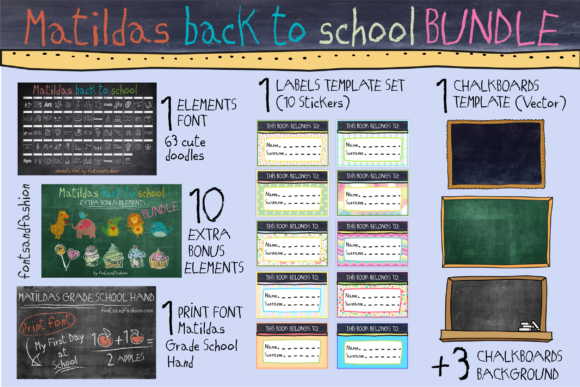 Matildas back to school BUNDLE
Matildas back to school
elements font by fontsandfashion
1 ELEMENTS
FONT
63 cute
doodles
fontsandfashion
Matildas back to school
EXTRA BONUS ELEMENTS
BUNDLE
by fontsandfashion
10
EXTRA
BONUS
ELEMENTS
MATILDAS GRADE SCHOOL HAND
fontsandfashion.com
Print font
My First Day
at
School
1 + 1 =
2 APPLES
1 PRINT FONT
Matildas
Grade School
Hand
1 LABELS TEMPLATE SET
(10 Stickers)
THIS BOOK BELONGS TO:
Name
Surname
THIS BOOK BELONGS TO:
Name
Surname
THIS BOOK BELONGS TO:
Name
Surname
THIS BOOK BELONGS TO:
Name
Surname
THIS BOOK BELONGS TO:
Name
Surname
THIS BOOK BELONGS TO:
Name
Surname
THIS BOOK BELONGS TO:
Name
Surname
THIS BOOK BELONGS TO:
Name
Surname
THIS BOOK BELONGS TO:
Name
Surname
THIS BOOK BELONGS TO:
Name
Surname
1 CHALKBOARDS
TEMPLATE (Vector)
+3 CHALKBOARDS
BACKGROUND